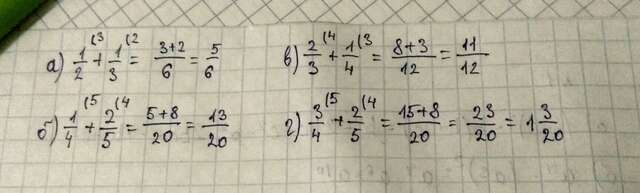 а) 1/2 (3 + 1/3 (2 = 3+2/6 = 5/6
в) 2/3 (4 + 1/4 (3 = 8+3/12 = 11/12
б) 1/4 (5 + 2/5 (4 = 5+8/20 = 13/20
г) 3/4 (5 + 2/5 (4 = 15+8/20 = 23/20 = 1 3/20